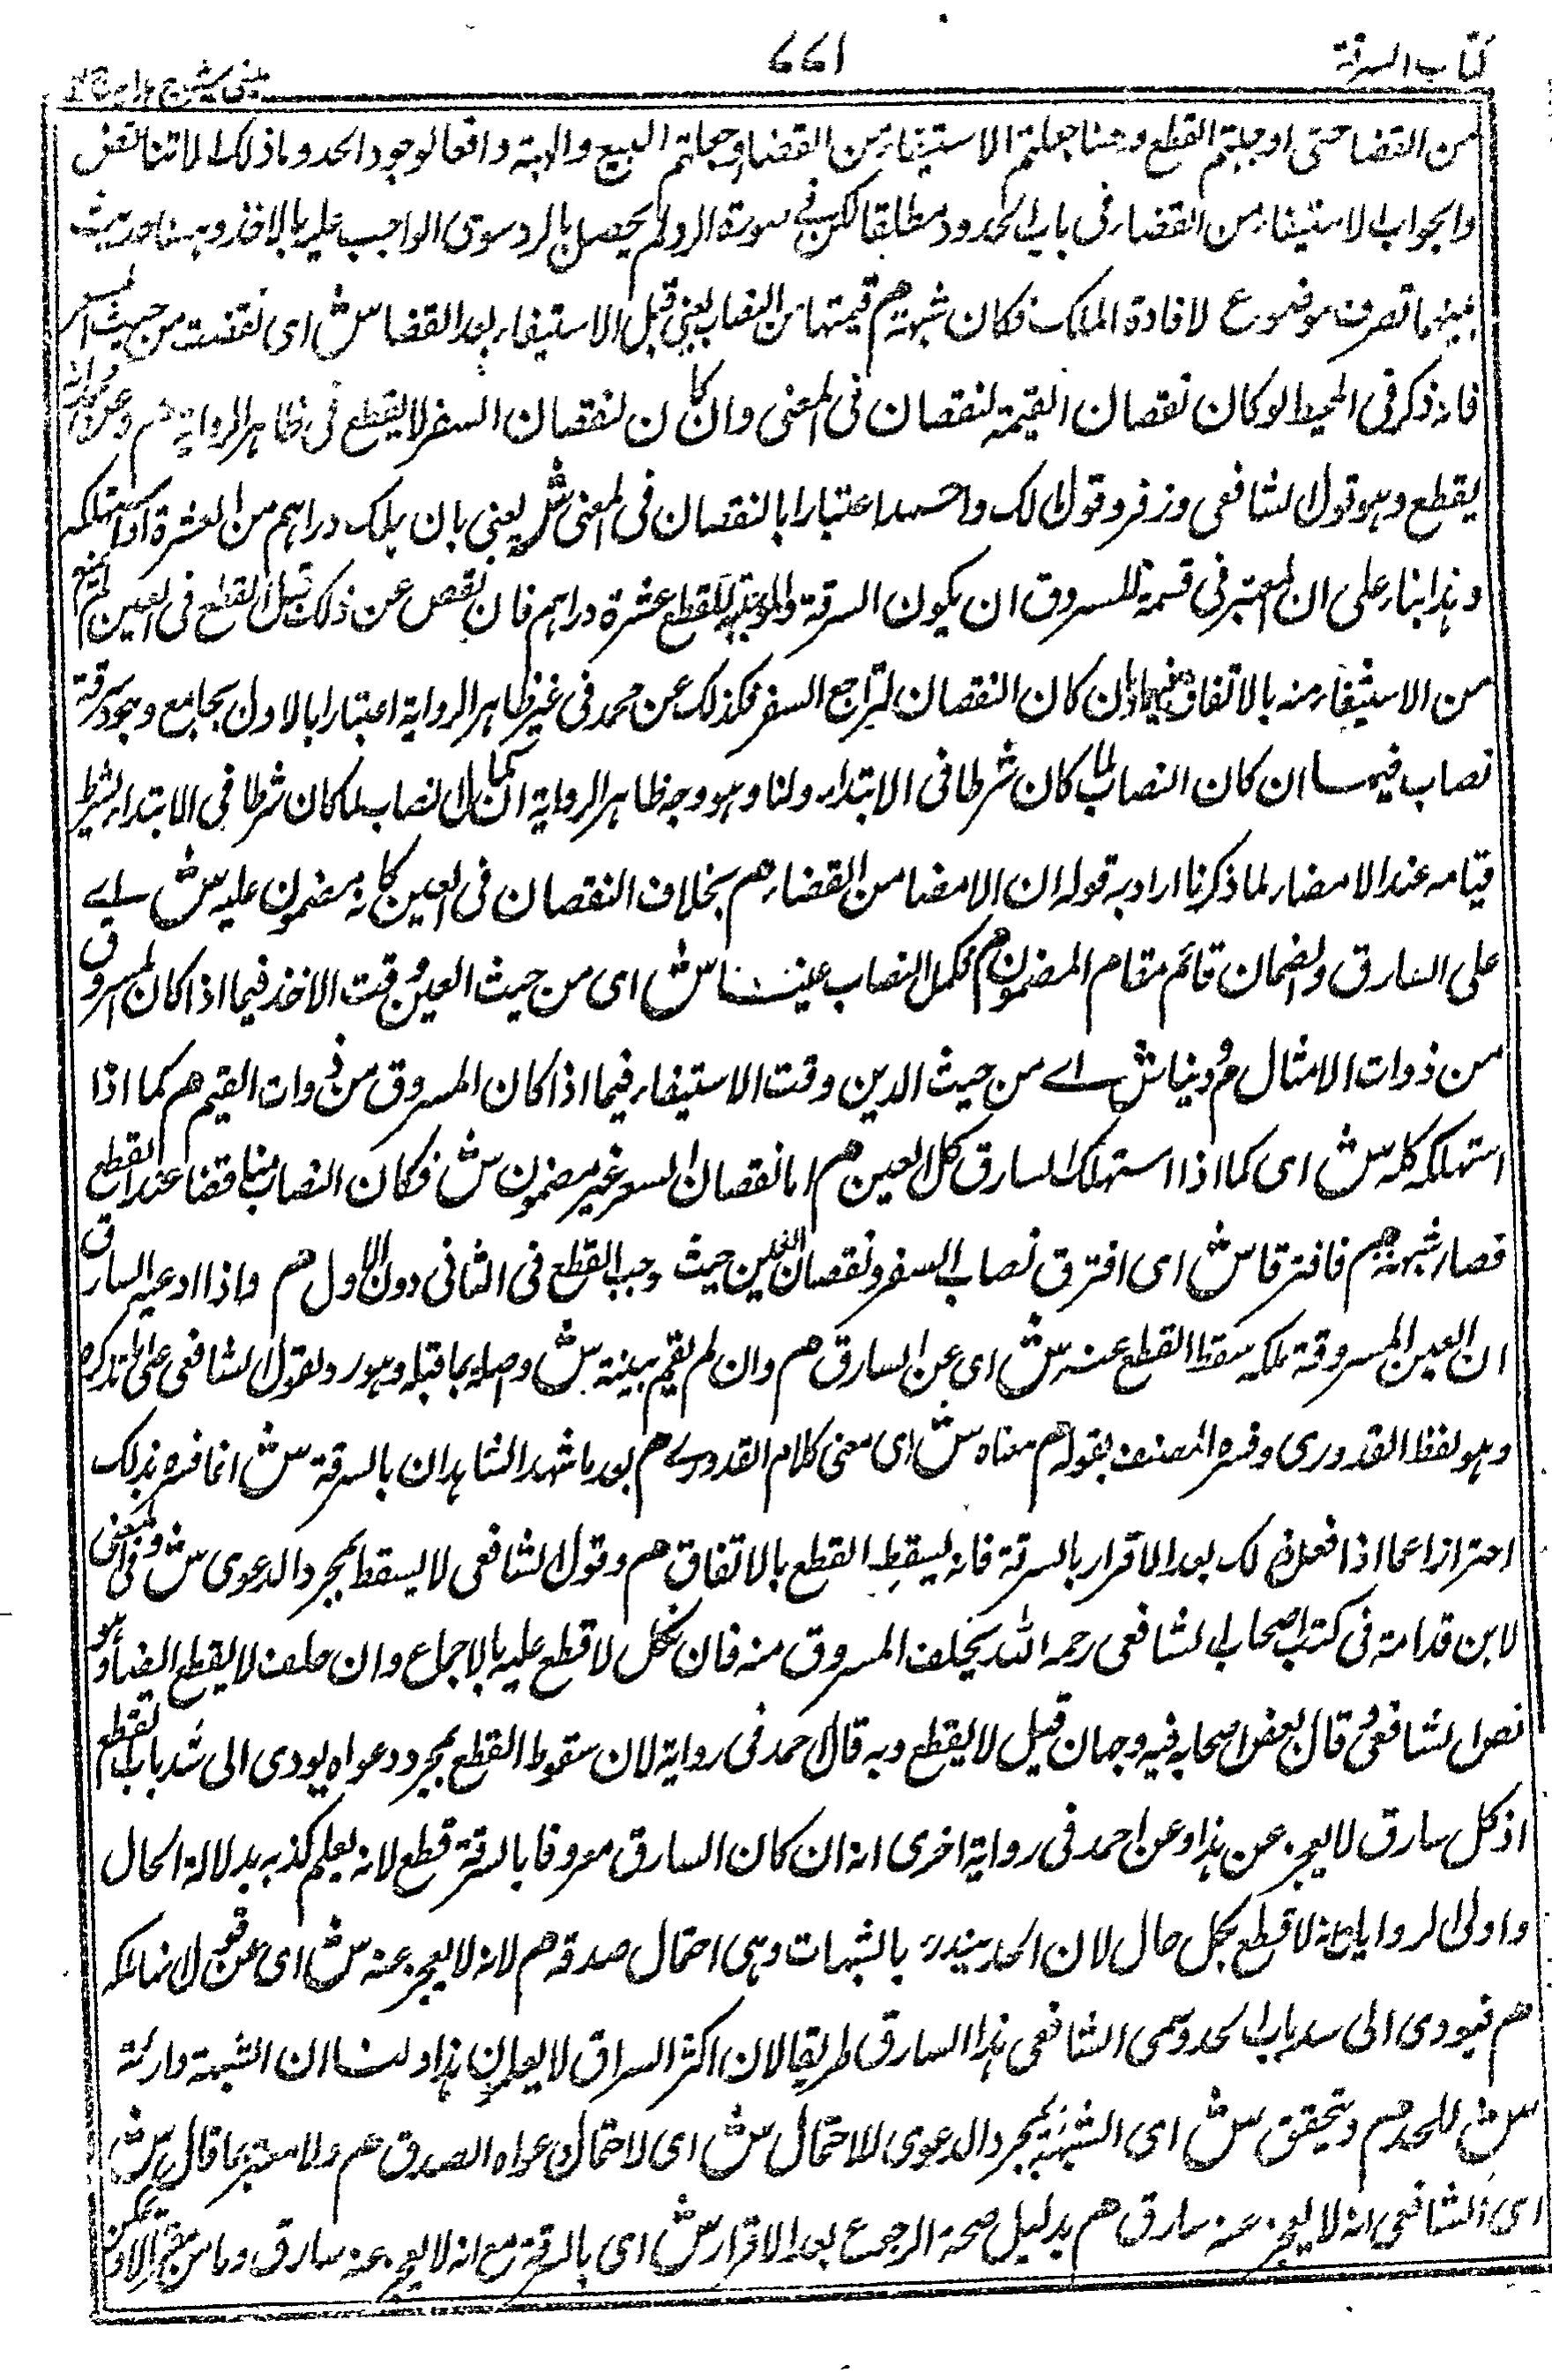 كتاب السرقة
٦٦١
عينى شرح هدايه ج ٢
من القضا حتى اوجبتم القطع وهنا جعلتم الاستيفاء من القضا وجعلتم البيع والهبة دافعا لوجود الحد وما ذلك الا تناقض
والجواب الاستيفاء من القضاء فى باب الحدود مطلقا لكن فى صورة الرد لم يحصل بالرد سوى الواجب عليه بالاخذ وههنا حديث
بينهما تصرف موضوع لافادة الملك فكان شبهة هم قيمتها من النصاب يعنى قبل الاستيفاء بعد القضا ش اى نقصت من حيث السعر
فانه ذكر فى المحيط لو كان نقصان القيمة لنقصان فى المعنى وان كان لنقصان السعر لا يقطع فى ظاهر الرواية هم وعن محمد انه
يقطع وهو قول الشافعى وزفر وقول مالك واحمد اعتبارا بالنقصان فى المعنى ش يعنى بان هلك دراهم من العشرة او استهلكه
وهذا بناء على ان المعتبر فى قسمة للمسروق ان يكون السرقة والموجبة للقطع عشرة دراهم فان نقص عن ذلك قبل القطع فى العين لم يمنع
من الاستيفاء منه بالاتفاق فيما اذا كان النقصان لتراجع السفر فكذلك عن محمد فى غير ظاهر الرواية اعتبارا بالاول بجامع وجود سرقة
نصاب فيهما ان كان النصاب لما كان شرطا فى الابتداء ولنا وهو وجه ظاهر الرواية ان كمال النصاب لما كان شرطا فى الابتداء يشترط
قيامه عند الامضاء لما ذكرنا اراد به قوله ان الامضا من القضاء هم بخلاف النقصان فى العين كانه مضمون عليه ش اے
على السارق والضمان قائم مقام المضمون هم فكمل النصاب عينا ش اى من حيث العين وقت الاخذ فيما اذا كان المسروق
من ذوات الامثال هم ودينا ش اے من حيث الدين وقت الاستيفاء فيما اذا كان المسروق من ذوات القيم هم كما اذا
استهلكه كله ش اى كما اذا استهلك السارق كل العين هم اما نقصان السعر غير مضمون ش فكان النصاب ناقصا عند القطع
فصار شبهة هم فافترقا ش اى افترق نصاب السفر ونقصان العين حيث وجب القطع فى الثانى دون الاول هم واذا ادعى السارق
ان العين المسروقة ملكه سقط القطع عنه ش اى عن السارق هم وان لم يقم بينة ش وصله بما قبله وهو رد لقول الشافعى على ما تذكره
وهو لفظ القدورى وفسره المصنف بقوله هم معناه ش اى معنى كلام القدورے هم بعد ما شهد الشاهدان بالسرقة ش انما فسره بذلك
احترازا عما اذا فعل ذلك بعد الاقرار بالسرقة فانه يسقط القطع بالاتفاق هم وقول الشافعى لا يسقط بمجرد الدعوى ش وفى المغنى
لابن قدامة فى كتب اصحاب الشافعى رحمه الله يحلف المسروق منه فان نكل لا قطع عليه بالاجماع وان حلف لا يقطع ايضا وهو
نص الشافعى وقال بعض اصحابه فيه وجهان قيل لا يقطع وبه قال احمد فى رواية لان سقوط القطع بمجرد دعواه يودى الى سد باب القطع
اذ كل سارق لا يعجز عن هذا وعن احمد فى رواية اخرى انه ان كان السارق معروفا بالسرقة قطع لانه يعلم كذبه بدلالة الحال
واولى الروايات انه لا قطع بكل حال لان الحد يندرء بالشبهات وهى احتمال صدقه هم لانه لا يعجز عنه ش اى عن قول انها ملكه
هم فيودى الى سد باب الحد وسمى الشافعى هذا السارق ظريفا لان اكثر السراق لا يعلمون هذا ولنا ان الشبهة دارئة
ش للحد هم وتحقق ش اى الشبهة بمجرد الدعوى للاحتمال ش اى لاحتمال دعواه الصدق هم ولا معتبر بما قال ش
اى الشافعى انه لا يعجز عنه سارق هم بدليل صحة الرجوع بعد الاقرار ش اى بالسرقة مع انه لا يعجز عنه سارق وما من مقر الا ويمكن